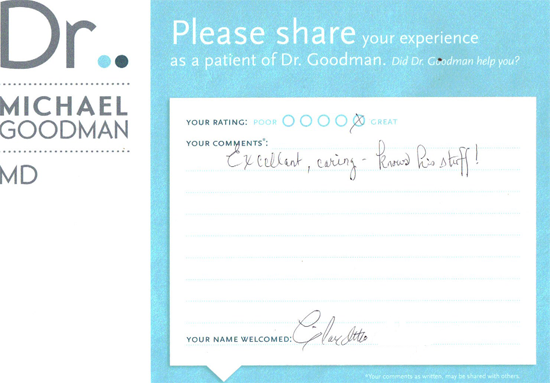 Dr..
MICHAEL
GOODMAN
MD
Please share your experience
as a patient of Dr. Goodman. Did Dr. Goodman help you?
YOUR RATING: POOR GREAT
YOUR COMMENTS*:
Excellent, caring - knows his stuff!
YOUR NAME WELCOMED:
*Your comments as written, may be shared with others.